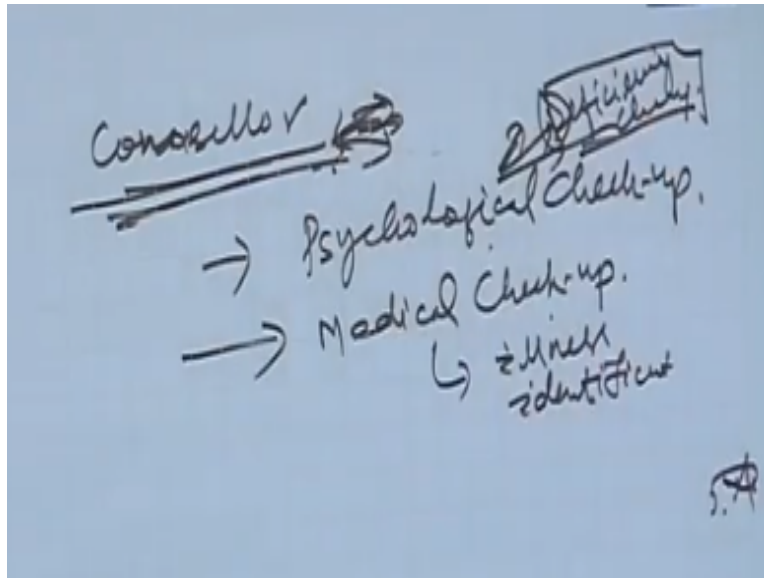 Conosellor
Deficiency
Psychological Check-up.
Medical Check-up.
illness
identificat